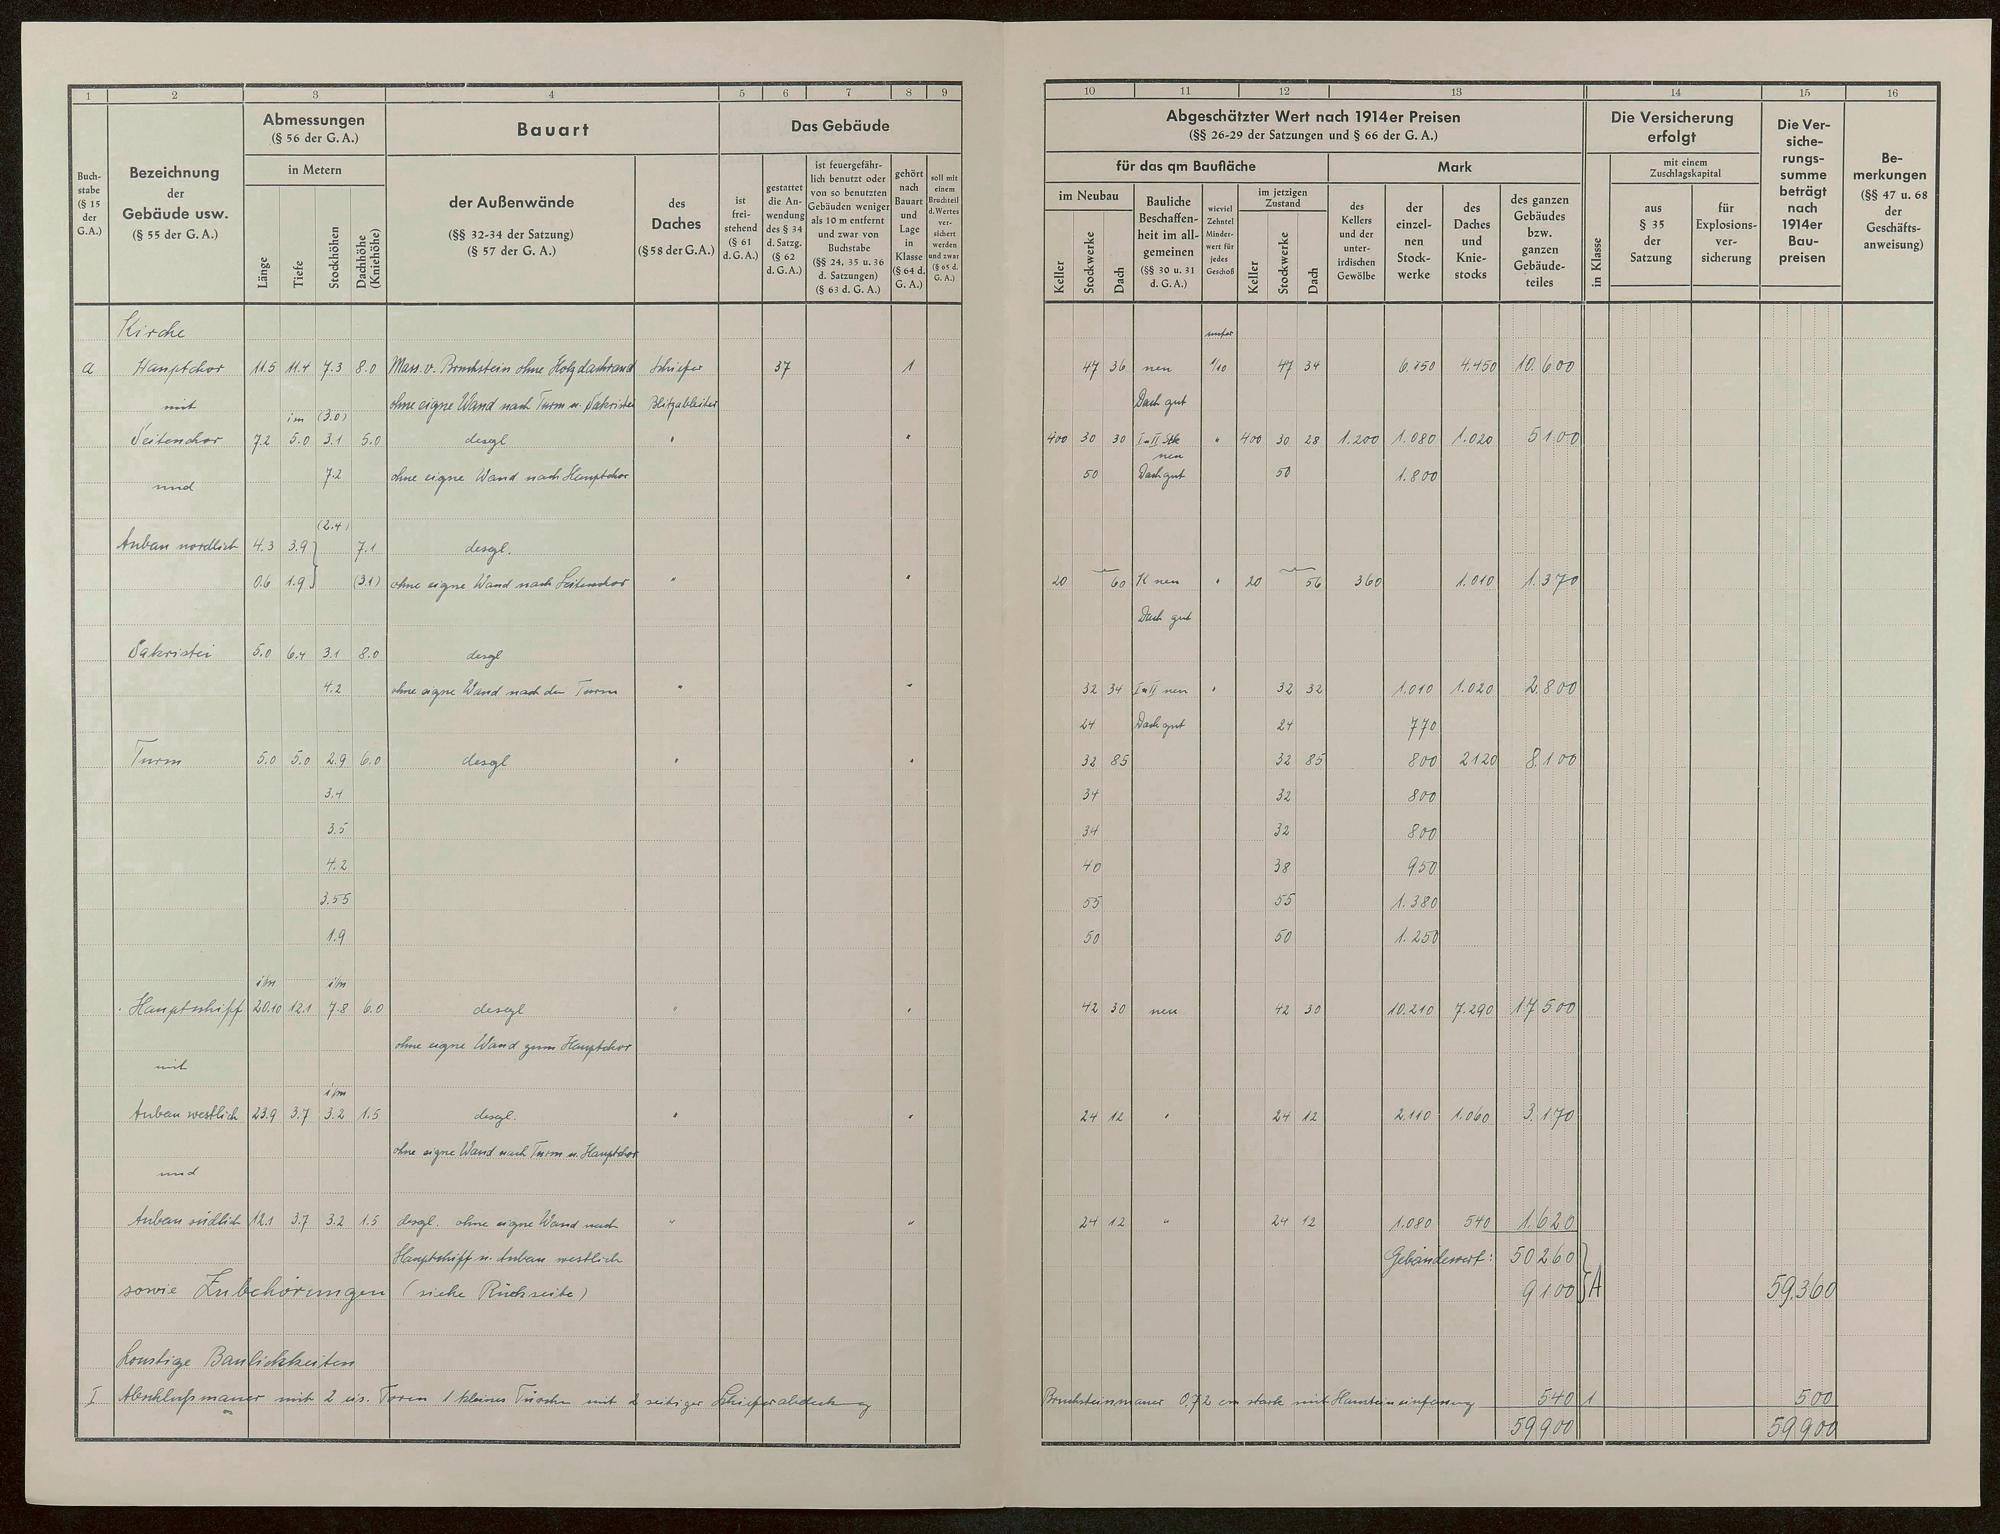 1 2 3 4 5 6 7 8 9
Buch-
stabe
(§ 15
der
G.A.)
Bezeichnung
der
Gebäude usw.
(§ 55 der G. A.)
Abmessungen
(§ 56 der G. A.)
in Metern
Länge
Tiefe
Stockhöhen
Dachhöhe
(Kniehöhe)
Bauart
der Außenwände
(§§ 32-34 der Satzung)
(§ 57 der G. A.)
des
Daches
(§ 58 der G.A.)
Das Gebäude
ist
frei-
stehend
(§ 61
d. G.A.)
gestattet
die An-
wendung
des § 34
d. Satzg.
(§ 62
d. G.A.)
ist feuergefähr-
lich benutzt oder
von so benutzten
Gebäuden weniger
als 10 m entfernt
und zwar von
Buchstabe
(§§ 24, 35 u. 36
d. Satzungen)
(§ 63 d. G. A.)
gehört
nach
Bauart
und
Lage
in
Klasse
(§ 64 d.
G. A.)
soll mit
einem
Bruchteil
d. Wertes
ver-
sichert
werden
und zwar
(§ 65 d.
G. A.)
Kirche
a Hauptchor 11.5 11.4 7.3 8.0 Mass. v. Bruchstein ohne Holzdachrand Schiefer 37 1
mit im (3.0) ohne eigne Wand nach Turm u. Sakristei Blitzableiter
Seitenchor 7.2 5.0 3.1 5.0 desgl " "
und 7.2 ohne eigne Wand nach Hauptchor
(2.4)
Anbau nördlich 4.3 3.9 7.1 desgl.
0.6 1.9 (3.1) ohne eigne Wand nach Seitenchor " "
Sakristei 5.0 6.4 3.1 8.0 desgl
4.2 ohne eigne Wand nach dem Turm " "
Turm 5.0 5.0 2.9 6.0 desgl " "
3.4
3.5
4.2
3.55
1.9
i/m i/m
Hauptschiff 20.10 12.1 7.8 6.0 desgl " "
ohne eigne Wand zum Hauptchor
mit
i/m
Anbau westlich 23.9 3.7 3.2 1.5 desgl. " "
ohne eigne Wand nach Turm u. Hauptchor
und
Anbau südlich 12.1 3.7 3.2 1.5 desgl. ohne eigne Wand nach " "
Hauptschiff u. Anbau westlich
sowie Zubehörungen (siehe Rückseite)
Sonstige Baulichkeiten
I Abschlußmauer mit 2 eis. Toren 1 kleines Türchen mit 2 seitiger Schieferabdeckung
10 11 12 13 14 15 16
Abgeschätzter Wert nach 1914er Preisen
(§§ 26-29 der Satzungen und § 66 der G. A.)
für das qm Baufläche
Mark
im Neubau
Keller
Stockwerke
Dach
Bauliche
Beschaffen-
heit im all-
gemeinen
(§§ 30 u. 31
d. G. A.)
wieviel
Zehntel
Minder-
wert für
jedes
Geschoß
im jetzigen
Zustand
Keller
Stockwerke
Dach
des
Kellers
und der
unter-
irdischen
Gewölbe
der
einzel-
nen
Stock-
werke
des
Daches
und
Knie-
stocks
des ganzen
Gebäudes
bzw.
ganzen
Gebäude-
teiles
Die Versicherung
erfolgt
in Klasse
mit einem
Zuschlagskapital
aus
§ 35
der
Satzung
für
Explosions-
ver-
sicherung
Die Ver-
siche-
rungs-
summe
beträgt
nach
1914er
Bau-
preisen
Be-
merkungen
(§§ 47 u. 68
der
Geschäfts-
anweisung)
unter
47 36 neu 1/10 47 34 6.150 4.450 10.600
Dach gut
400 30 30 I u II Stk " 400 30 28 1.200 1.080 1.020 5100
neu
50 Dach gut 50 1.800
20 60 K neu " 20 56 360 1.010 1.370
Dach gut
32 34 I u II neu " 32 32 1.010 1.020 2.800
24 Dach gut 24 770
32 85 32 85 800 2120 8.100
34 32 800
34 32 800
40 38 950
55 55 1.380
50 50 1.250
42 30 neu 42 30 10.210 7.290 17500
24 12 " 24 12 2.110 1.060 3.170
24 12 " 24 12 1.080 540 1.620
Gebäudewert: 50260
9100 A 59.360
Bruchsteinmauer 0.72 cm stark mit Hausteineinfassung 540 1 500
59900 59900